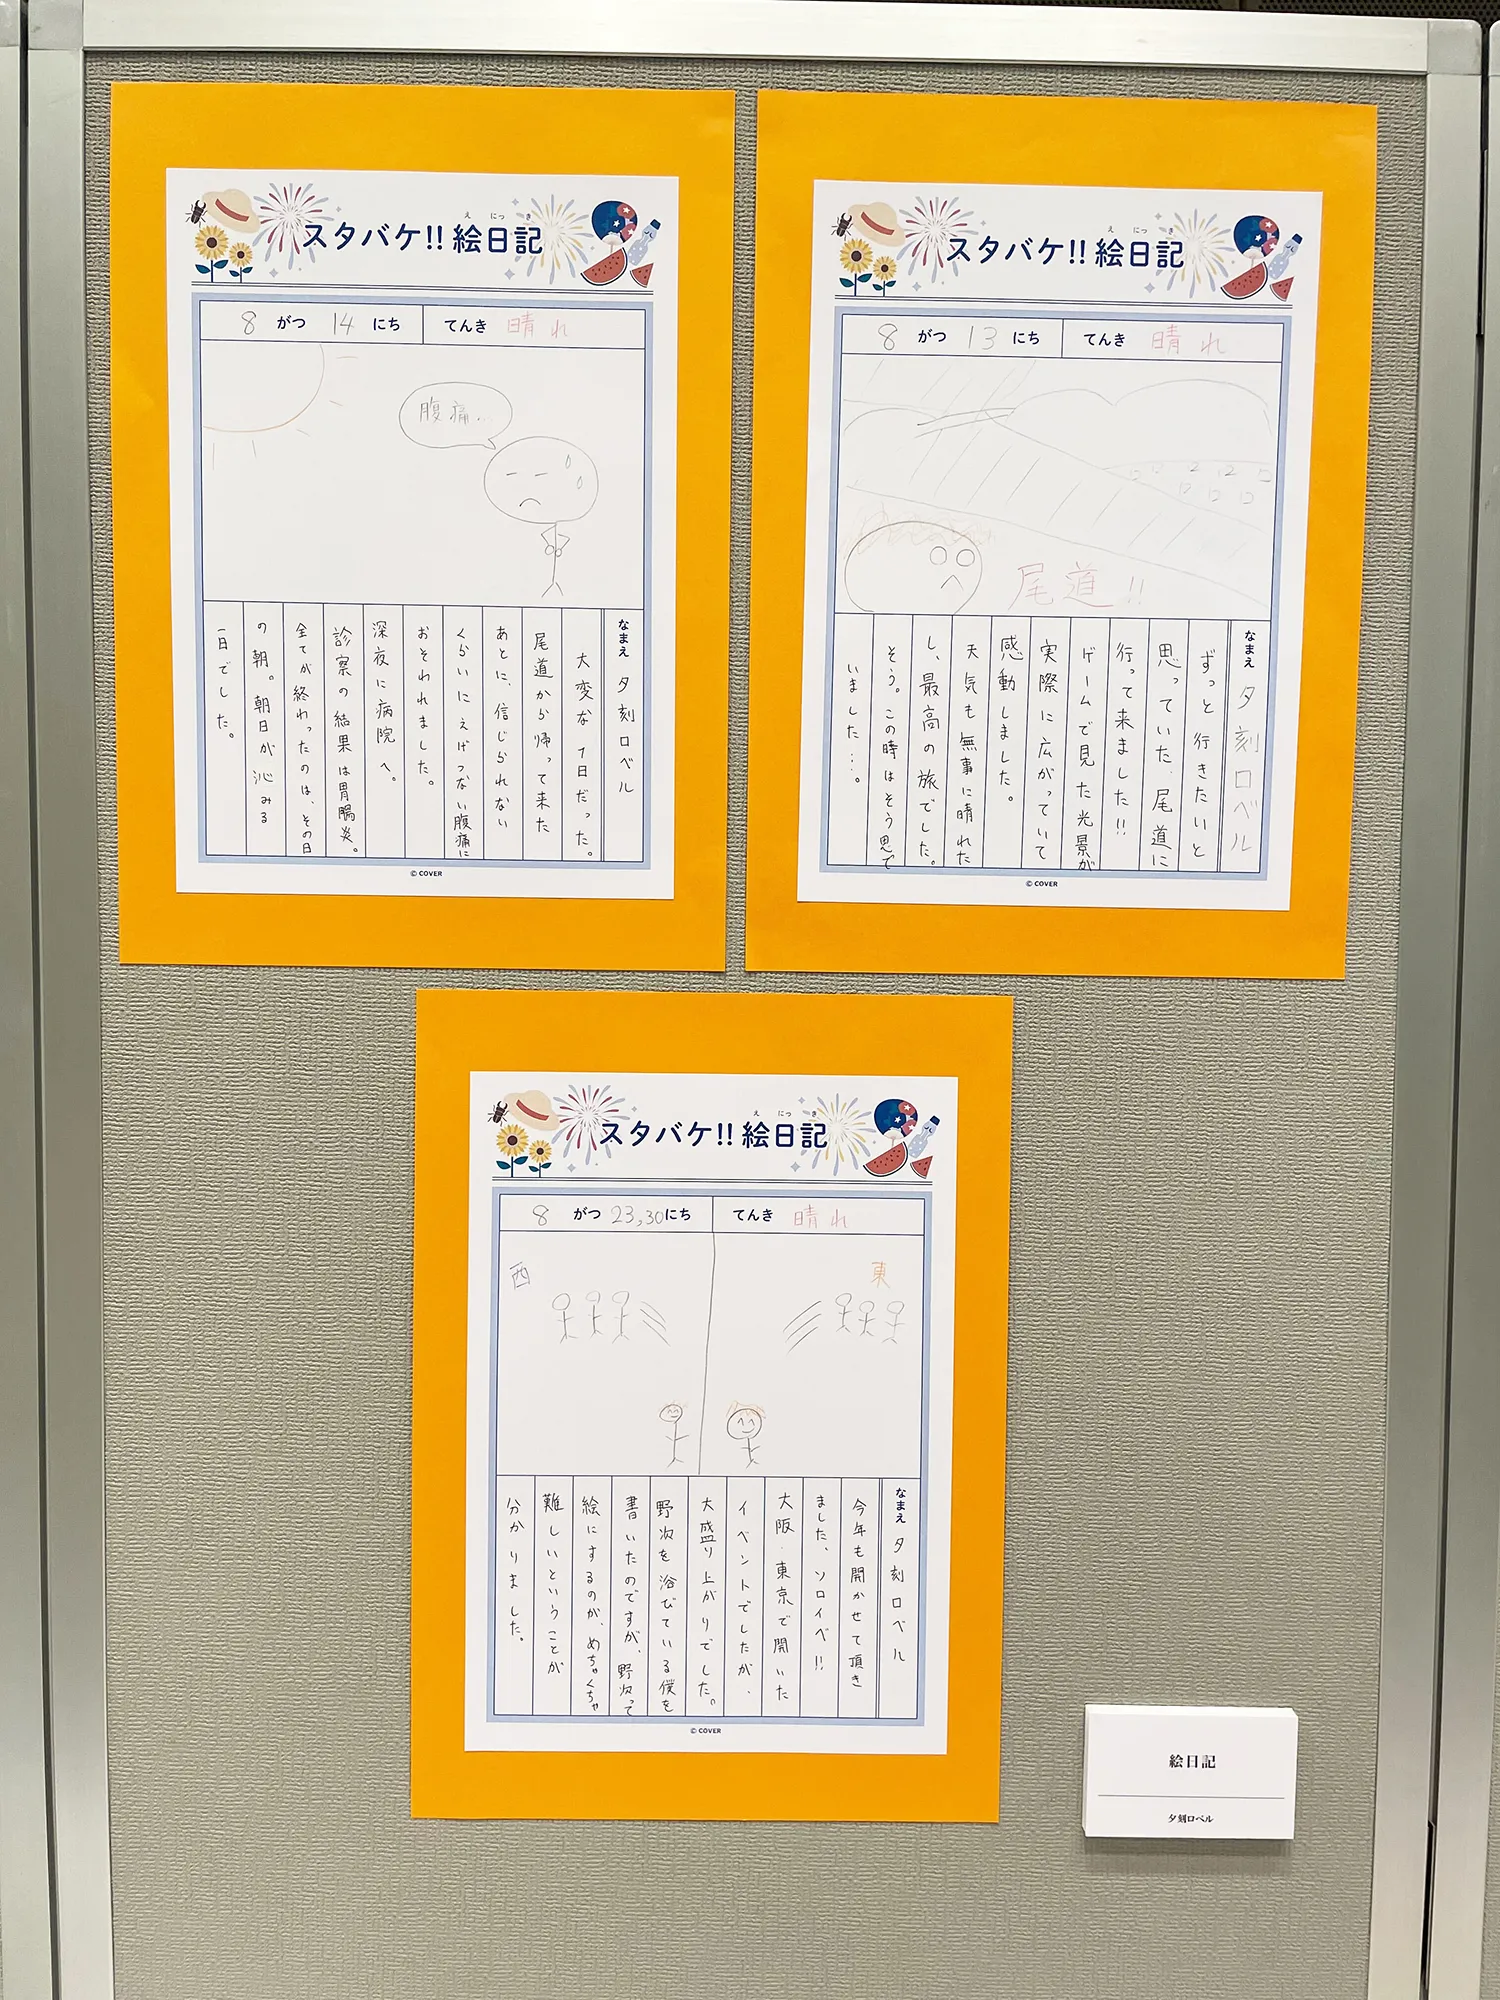 スタバケ!! 絵日記
え にっ き
8 がつ 14 にち てんき 晴れ
腹痛…
なまえ 夕刻ロベル
大変な1日だった。
尾道から帰って来た
あとに、信じられない
くらいにえげつない腹痛に
おそわれました。
深夜に病院へ。
診察の結果は胃腸炎。
全てが終わったのは、その日
の朝。朝日が沁みる
一日でした。
© COVER
スタバケ!! 絵日記
え にっ き
8 がつ 13 にち てんき 晴れ
尾道!!
なまえ 夕刻ロベル
ずっと行きたいと
思っていた、尾道に
行って来ました!!
ゲームで見た光景が
実際に広がっていて
感動しました。
天気も無事に晴れた
し、最高の旅でした。
そう。この時はそう思って
いました…。
© COVER
スタバケ!! 絵日記
え にっ き
8 がつ 23,30にち てんき 晴れ
西
東
なまえ 夕刻ロベル
今年も開かせて頂き
ました、ソロイベ!!
大阪・東京で開いた
イベントでしたが、
大盛り上がりでした。
野次を浴びている僕を
書いたのですが、野次って
絵にするのが、めちゃくちゃ
難しいということが
分かりました。
© COVER
絵日記
夕刻ロベル